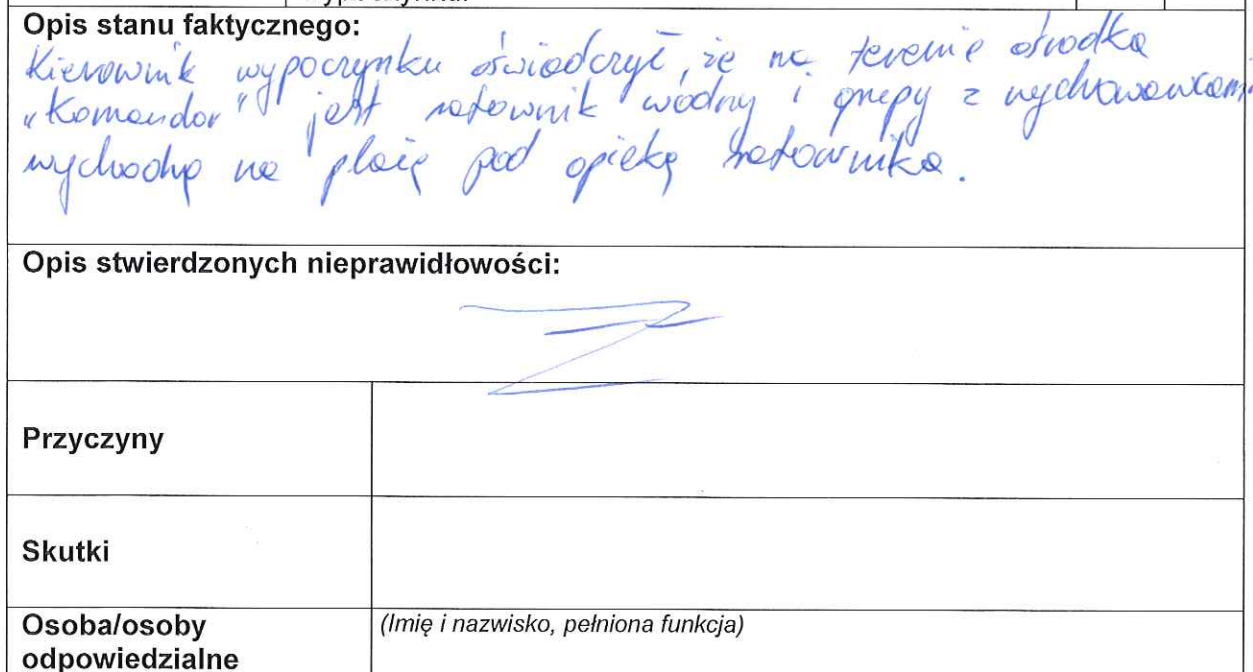 Opis stanu faktycznego:
Kierownik wypoczynku oświadczył, że na terenie ośrodka
"Komandor" jest ratownik wodny i grupy z wychowawcami
wychodzą na plażę pod opieką ratownika.
Opis stwierdzonych nieprawidłowości:
Przyczyny
Skutki
Osoba/osoby
odpowiedzialne
(Imię i nazwisko, pełniona funkcja)